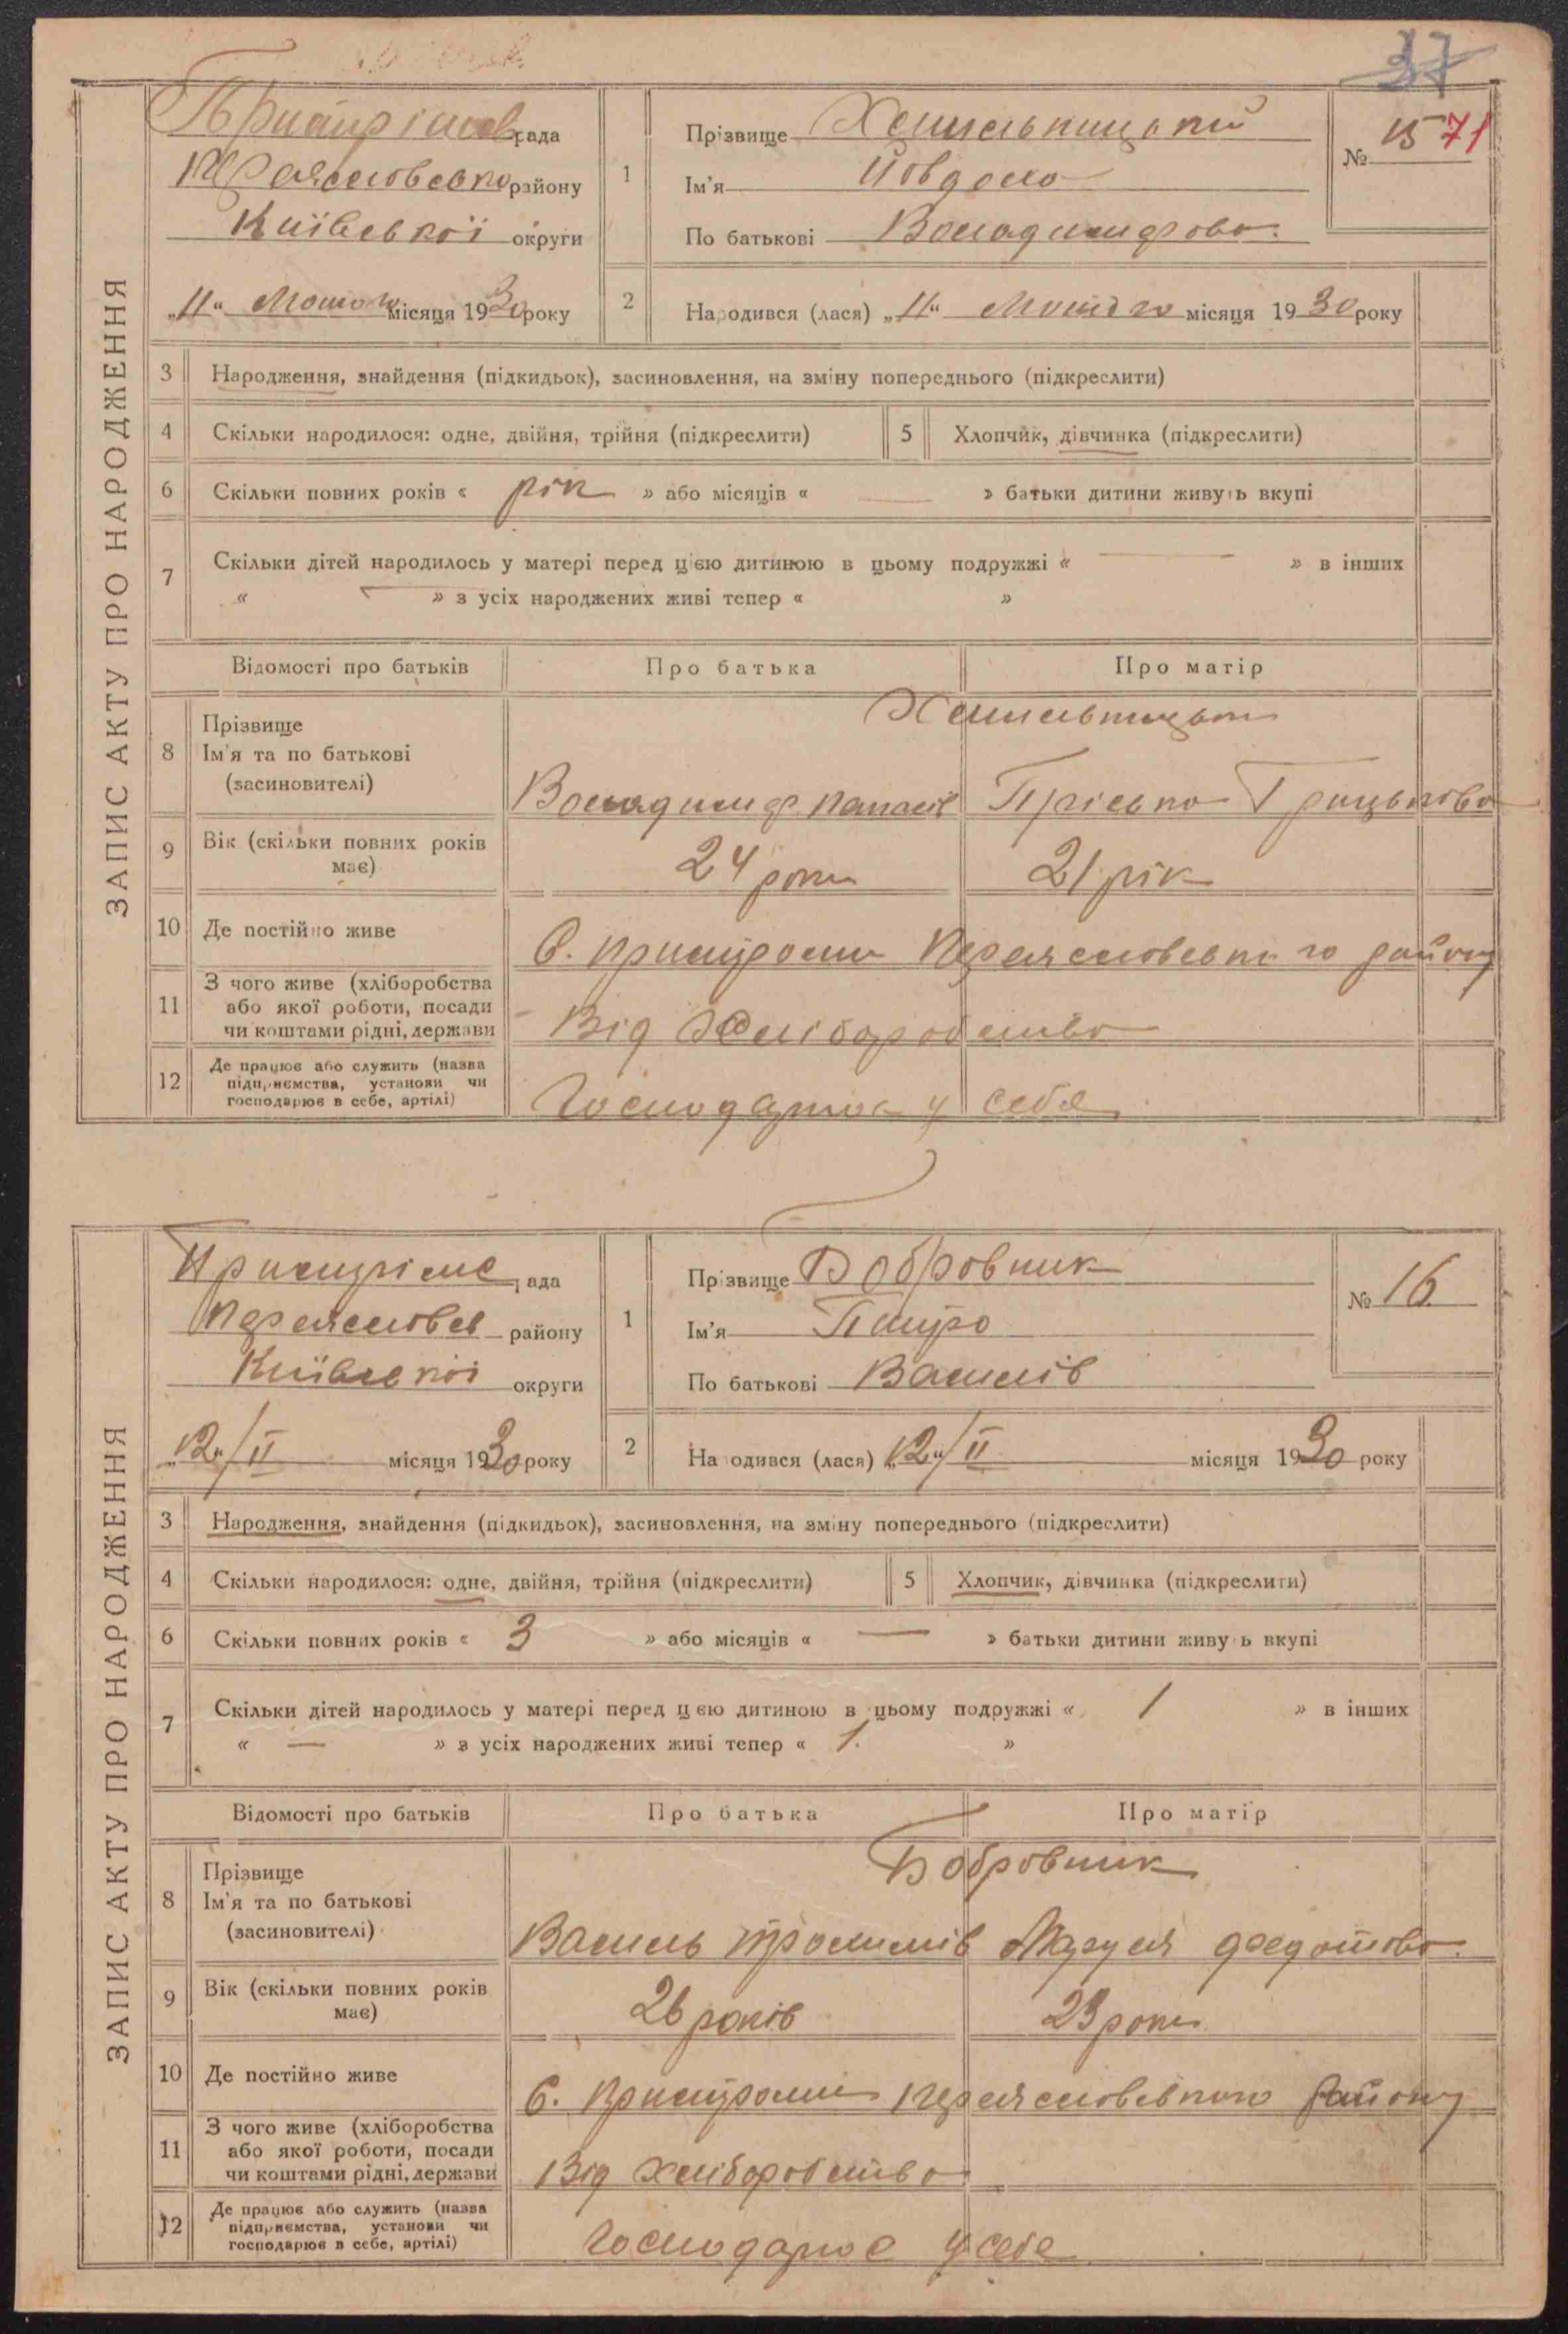 37
ЗАПИС АКТУ ПРО НАРОДЖЕННЯ
рада
району
Київської округи
„11“ Лютого місяця 1930 року
1
Прізвище Хмильницький
Ім'я Йовдоха
По батькові Володимирова.
№ 15 71
2
Народився (лася) „11“ Лютого місяця 1930 року
3 Народження, знайдення (підкидьок), засиновлення, на зміну попереднього (підкреслити)
4 Скільки народилося: одне, двійня, трійня (підкреслити)
5 Хлопчик, дівчинка (підкреслити)
6 Скільки повних років « рік » або місяців « — » батьки дитини живуть вкупі
7 Скільки дітей народилось у матері перед цією дитиною в цьому подружжі « — » в інших
« — » з усіх народжених живі тепер « »
Відомості про батьків
Про батька
Про матір
8 Прізвище
Ім'я та по батькові
(засиновителі)
Володимир Панасів Пріська Грицькова
9 Вік (скільки повних років має)
24 роки 21 рік
10 Де постійно живе
С. Пристроми Переяславського району
11 З чого живе (хліборобства або якої роботи, посади чи коштами рідні, держави
Від Хліборобства
12 Де працює або служить (назва підприємства, установи чи господарює в себе, артілі)
у себе
ЗАПИС АКТУ ПРО НАРОДЖЕННЯ
рада
Переяславс району
Київської округи
„12“/II місяця 1930 року
1
Прізвище Бобровник
Ім'я Питро
По батькові Василів
№ 16
2
Народився (лася) „12“/II місяця 1930 року
3 Народження, знайдення (підкидьок), засиновлення, на зміну попереднього (підкреслити)
4 Скільки народилося: одне, двійня, трійня (підкреслити)
5 Хлопчик, дівчинка (підкреслити)
6 Скільки повних років « 3 » або місяців « — » батьки дитини живуть вкупі
7 Скільки дітей народилось у матері перед цією дитиною в цьому подружжі « 1 » в інших
« — » з усіх народжених живі тепер « 1. »
Відомості про батьків
Про батька
Про матір
8 Прізвище
Ім'я та по батькові
(засиновителі)
Бобровник
Василь Трохимів Маруся Федотова.
9 Вік (скільки повних років має)
26 років 23 роки
10 Де постійно живе
С. Пристроми Переяславського району
11 З чого живе (хліборобства або якої роботи, посади чи коштами рідні, держави
Від Хліборобства
12 Де працює або служить (назва підприємства, установи чи господарює в себе, артілі)
Господарює у себе